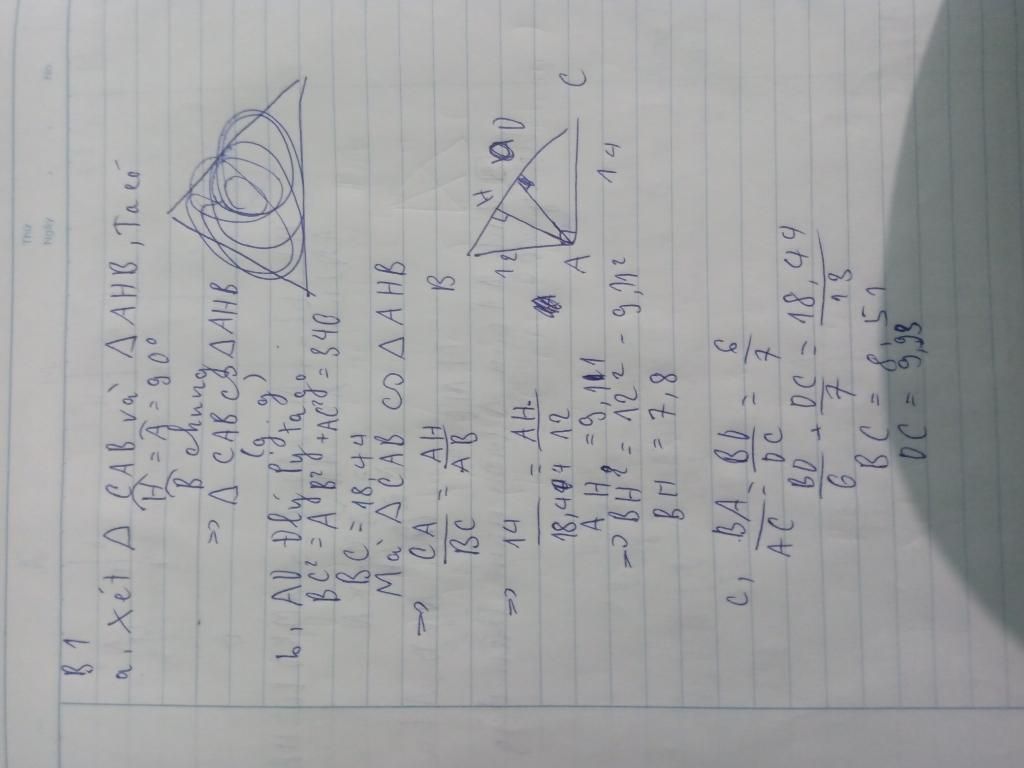 Thứ
Ngày
No.
B1
a, Xét Δ CAB và Δ AHB, Ta có
Ĥ = Â = 90°
B̂ chung
=> Δ CAB ∽ Δ AHB
(g.g)
b, AD Đlý Pytago
BC² = AB² + AC² = 340
BC = 18,44
Mà Δ CAB ∽ Δ AHB
=> CA/BC = AH/AB
=> 14/18,44 = AH/12
AH = 9,11
=> BH² = 12² - 9,11²
BH = 7,8
B
12
H
D
A
14
C
c, BA/AC = BD/DC = 6/7
BD/6 + DC/7 = 18,44/13
BC = 8,51
DC = 9,93